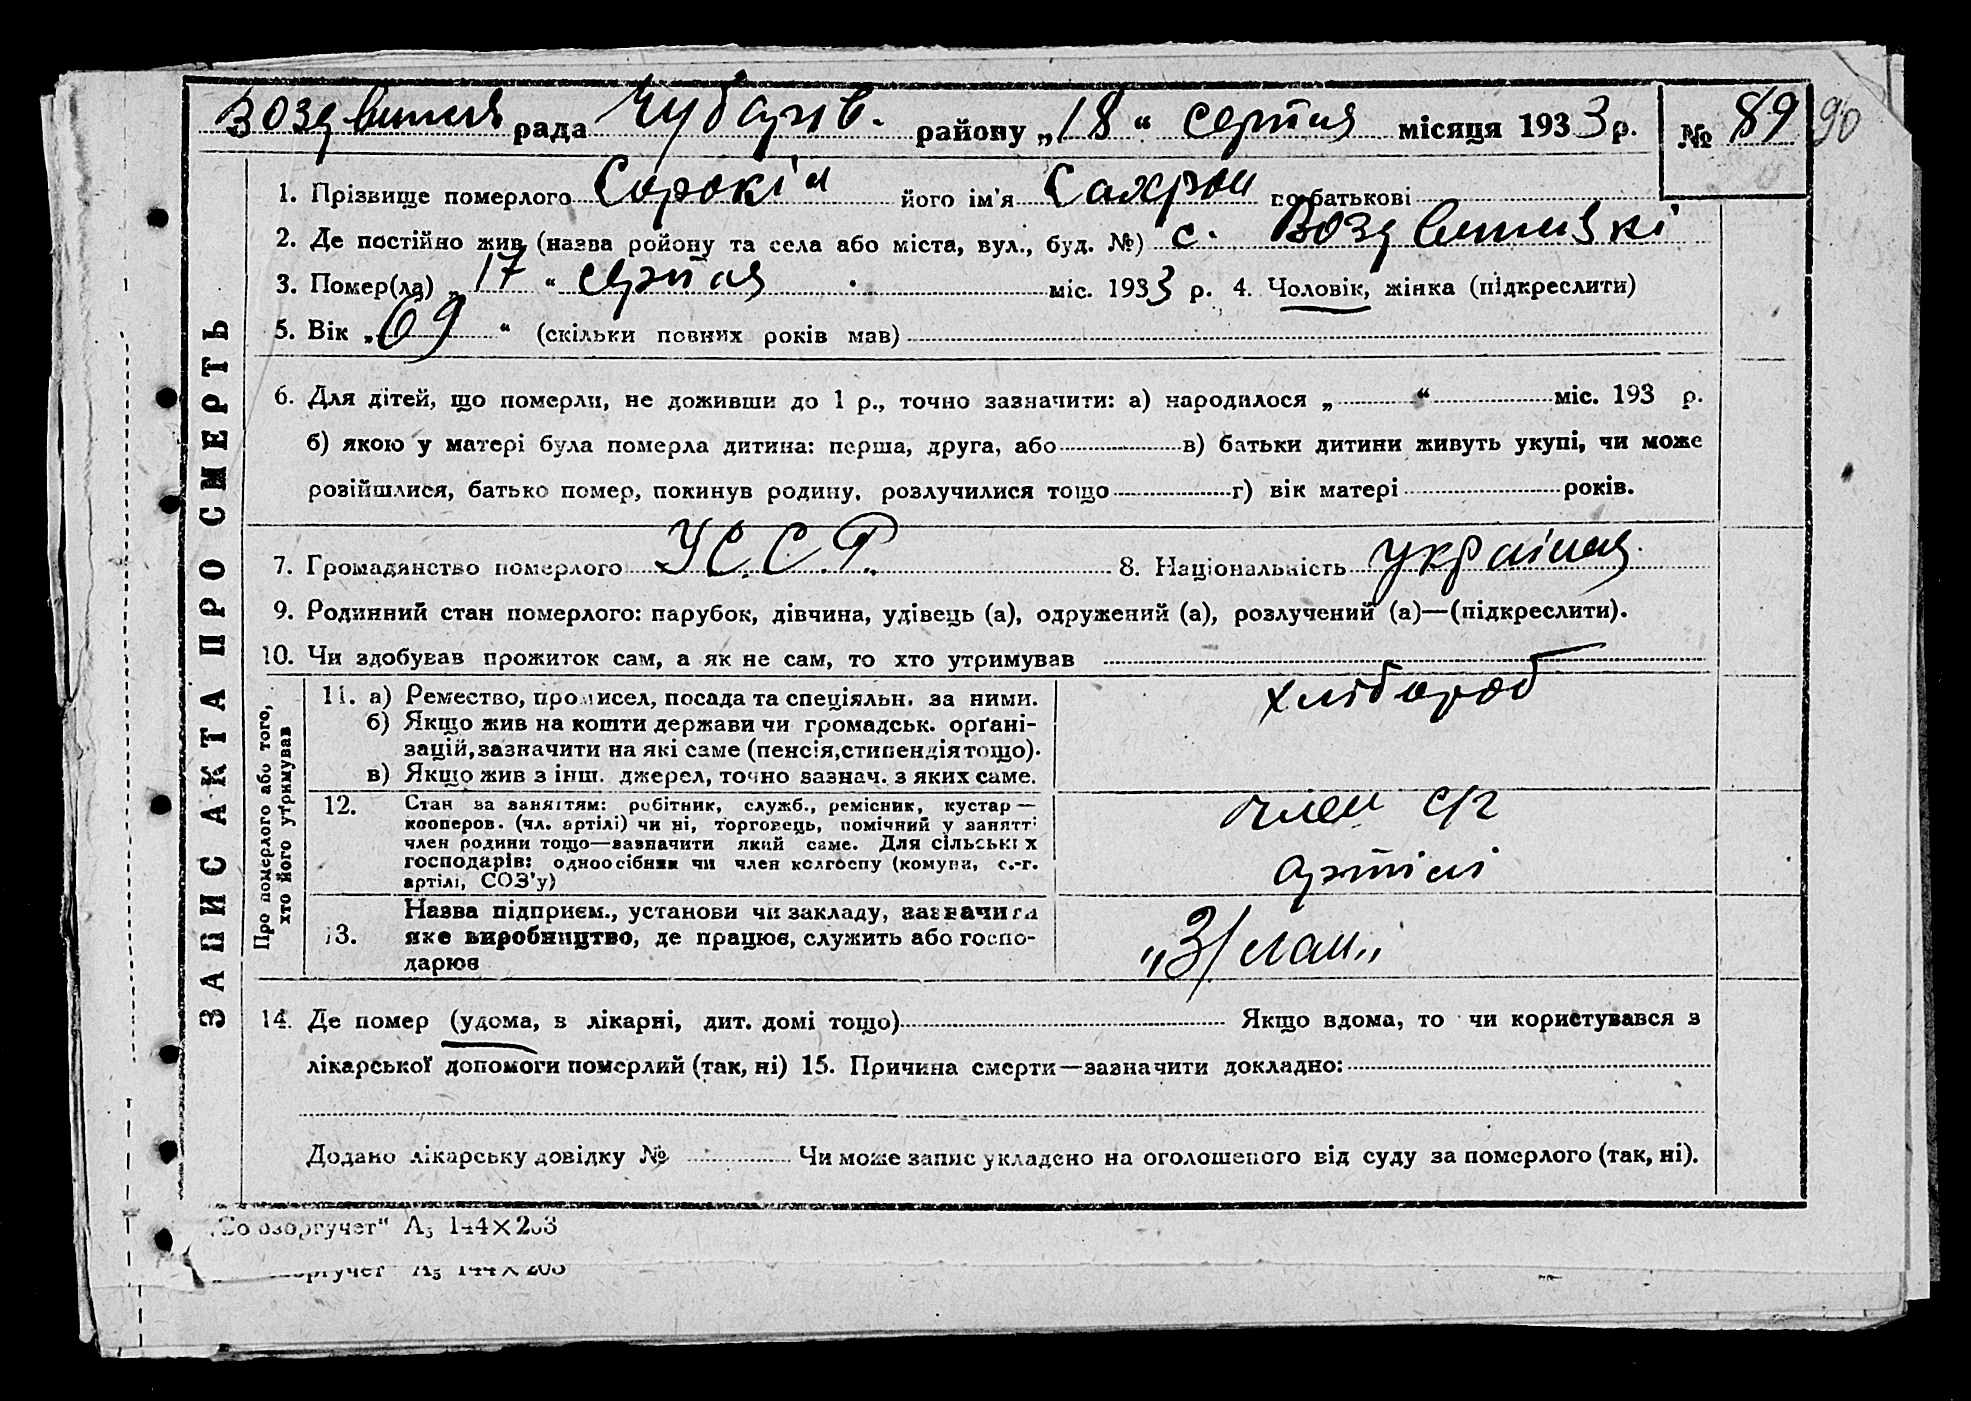 рада Чубарів. району „18“ серпня місяця 1933 р. № 89 90
1. Прізвище померлого Сорокін його ім'я по батькові
2. Де постійно жив (назва ройону та села або міста, вул., буд. №) с.
3. Помер(ла) „17“ серпня міс. 1933 р. 4. Чоловік, жінка (підкреслити)
5. Вік „69“ (скільки повних років мав)
6. Для дітей, що померли, не доживши до 1 р., точно зазначити: а) народилося „ “ міс. 193 р.
б) якою у матері була померла дитина: перша, друга, або в) батьки дитини живуть укупі, чи може
розійшлися, батько помер, покинув родину, розлучилися тощо г) вік матері років.
7. Громадянство померлого У.С.С.Р. 8. Національність
9. Родинний стан померлого: парубок, дівчина, удівець (а), одружений (а), розлучений (а)—(підкреслити).
10. Чи здобував прожиток сам, а як не сам, то хто утримував
ЗАПИС АКТА ПРО СМЕРТЬ
Про померлого або того,
хто його утримував
11. а) Ремество, промисел, посада та спеціяльн. за ними. хлібороб
б) Якщо жив на кошти держави чи громадськ. орґані-
зацій, зазначити на які саме (пенсія, стипендія тощо).
в) Якщо жив з інш. джерел, точно зазнач. з яких саме.
12. Стан за заняттям: робітник, служб., ремісник, кустар—
кооперов. (чл. артілі) чи ні, торговець, помічний у занятті
член родини тощо—зазначити який саме. Для сільських
господарів: одноосібник чи член колгоспу (комуна, с.-г.
артілі, СОЗ'у)
член с/г
артілі
13. Назва підприєм., установи чи закладу, зазначити
яке виробництво, де працює, служить або госпо-
дарює
14. Де помер (удома, в лікарні, дит. домі тощо) Якщо вдома, то чи користувався з
лікарської допомоги померлий (так, ні) 15. Причина смерти—зазначити докладно:
Додано лікарську довідку № Чи може запис укладено на оголошеного від суду за померлого (так, ні).
„Союзоргучет“ А5 144×203
оргучет“ А5 144×203